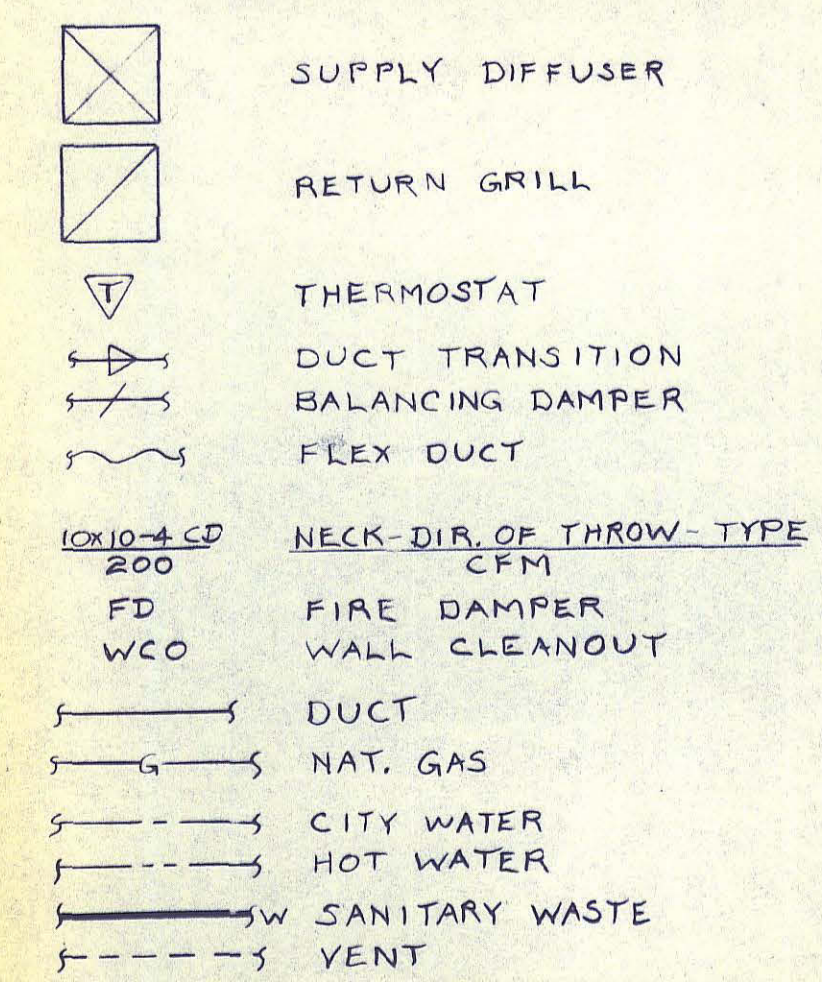 SUPPLY DIFFUSER
RETURN GRILL
T THERMOSTAT
DUCT TRANSITION
BALANCING DAMPER
FLEX DUCT
10X10-4 CD NECK-DIR. OF THROW-TYPE
200 CFM
FD FIRE DAMPER
WCO WALL CLEANOUT
DUCT
G NAT. GAS
CITY WATER
HOT WATER
W SANITARY WASTE
VENT